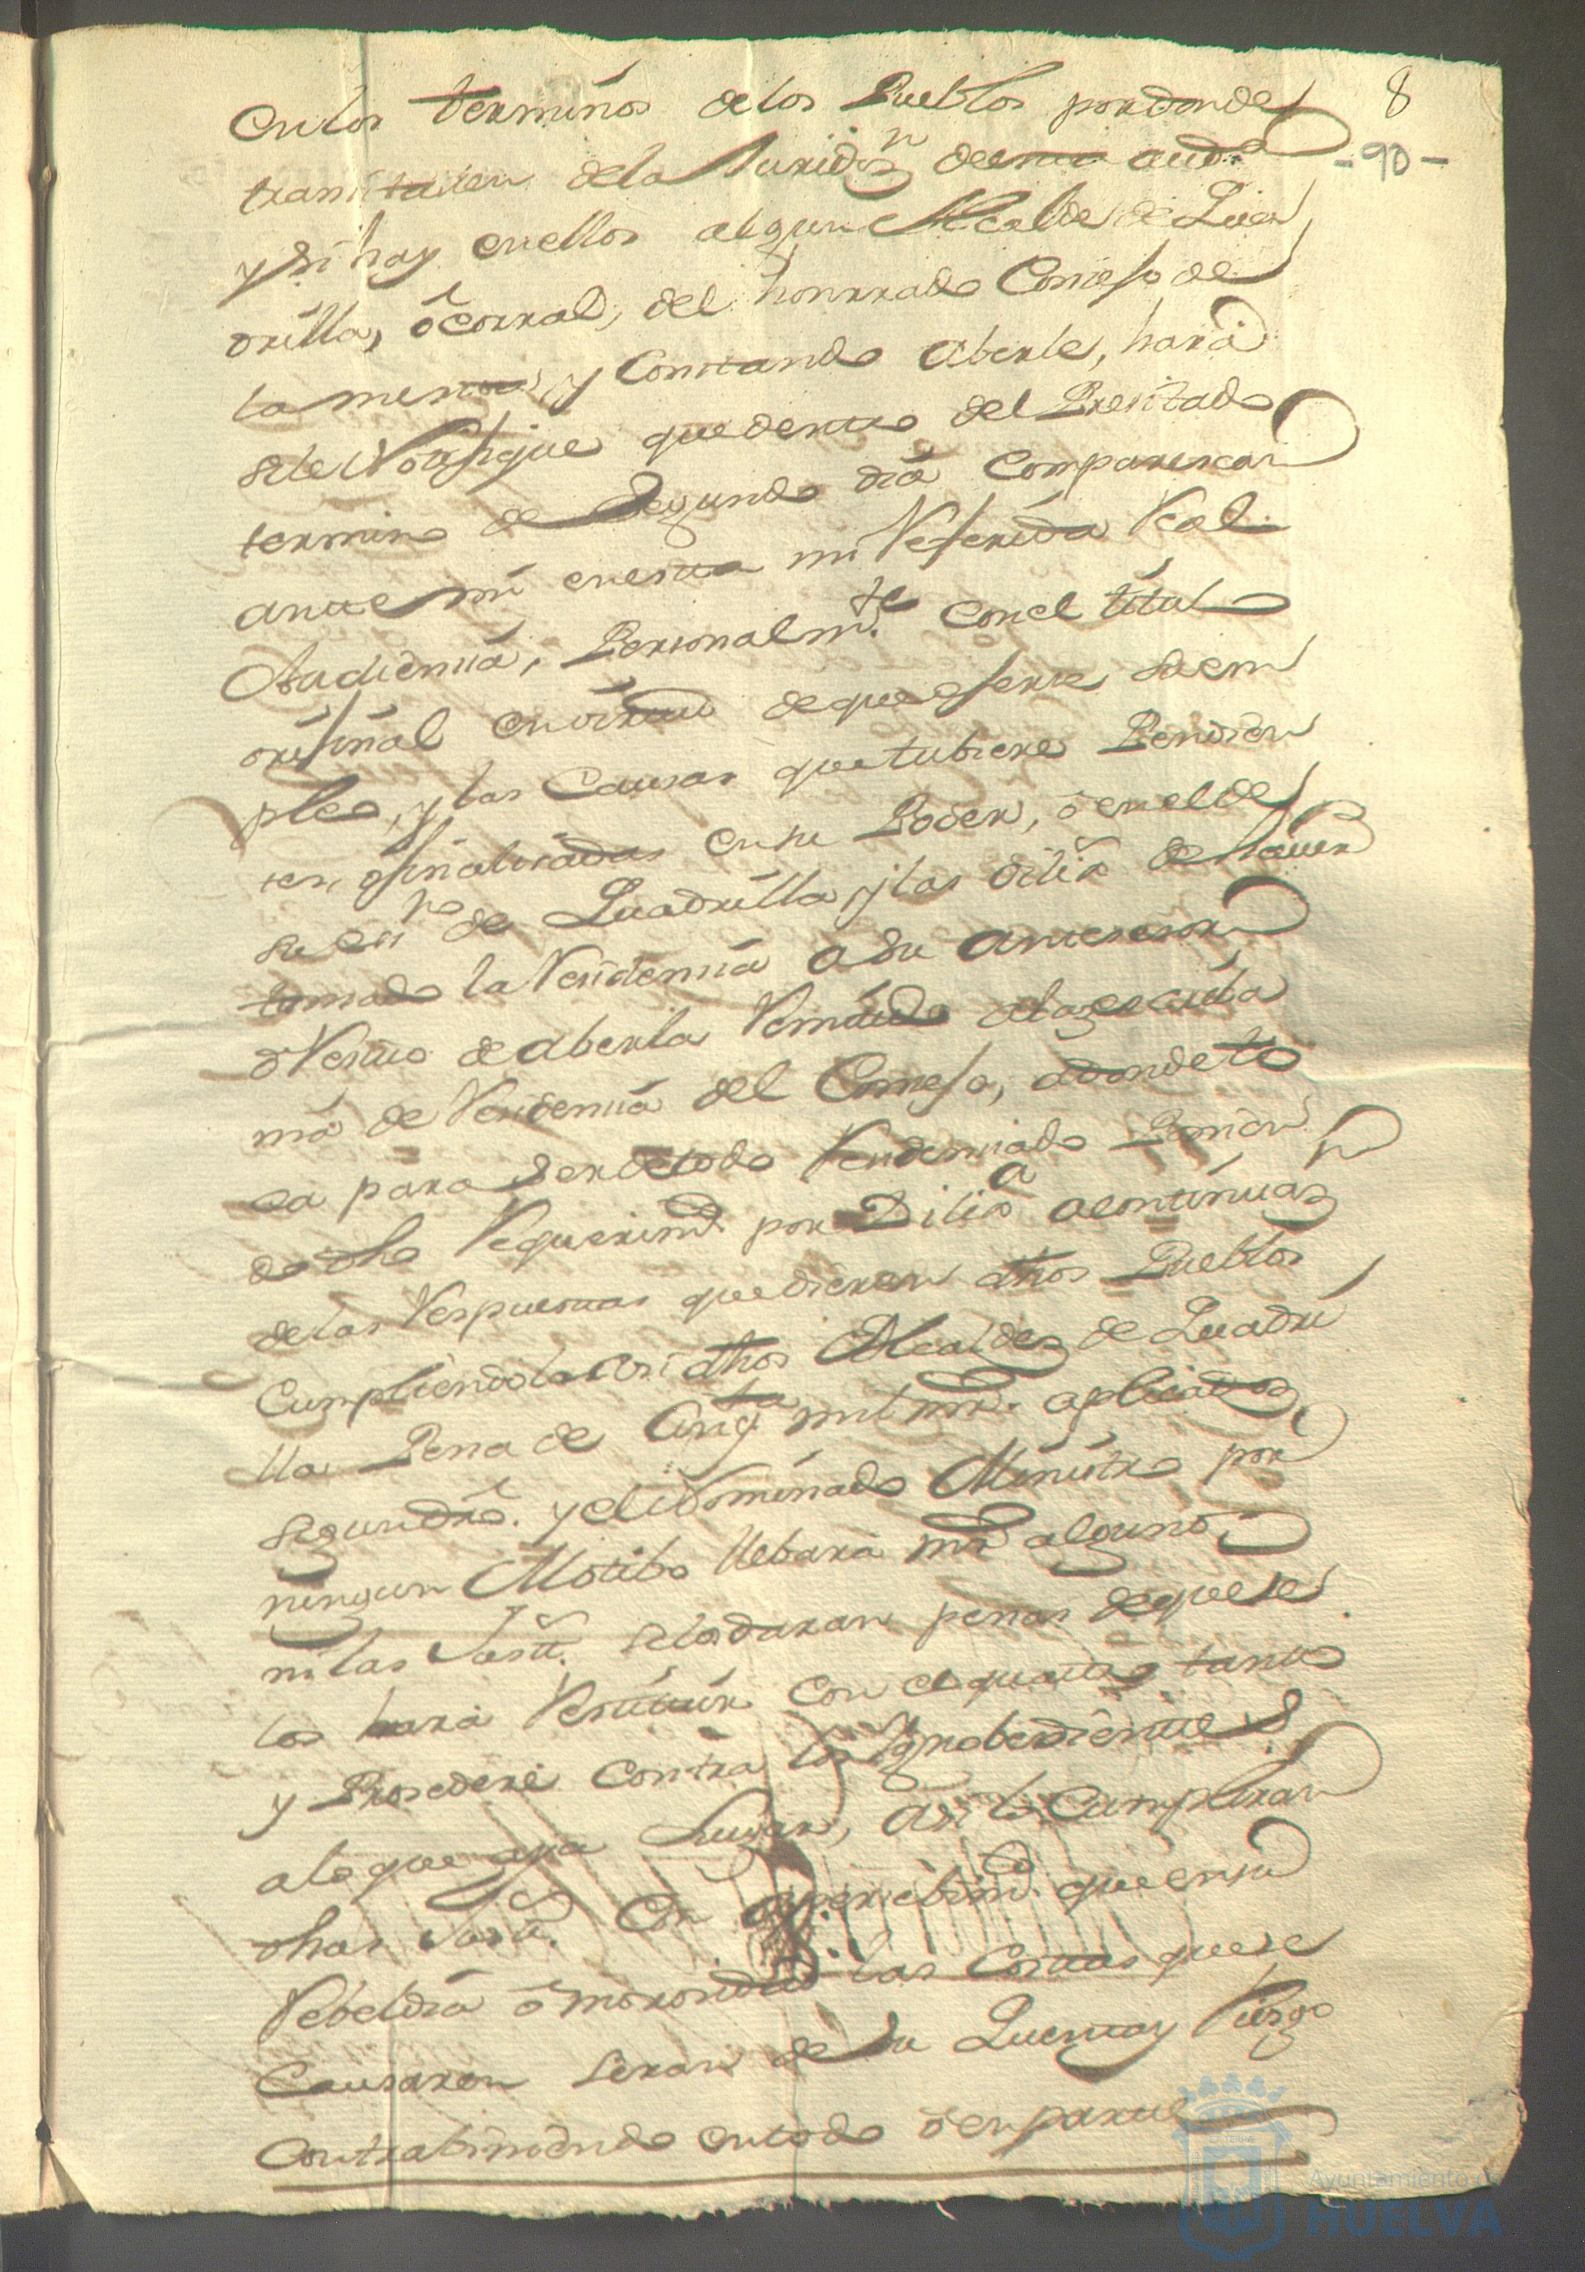 en los terminos de los Pueblos por donde
8
transitaren de la Juridiz.n de esta aud.a
-90-
y si hay en ellos algun Alcalde de Qua
drilla, ô corral, del honrrado Consejo de
la mesta, y Constando aberle, hará
se le Notifique que dentro del Presitado
termino de Segundo dia Comparescan
ante mi en esta mi Referida Real
Audiencia, Personalm.te con el titulo
orijinal en virtud de que eserse su em
pleo, y las Causas que tubiere Pendien
tes, ô finalisadas en su Poder, ô en el de
su es.no de Quadrilla, y las dilix.s de haver
tomado la Residencia a su antecesor
ô Resivo de aberla Remitido a la escriba
nia de Residencia del Consejo, a donde to
ca para ser de todo Residenciado Ponien
do dho Requerim.to por Dilix.a a continuaz.n
de las Respuestas que dieren dhos Pueblos
Cumpliendolo asi dhos Alcaldes de Quadri
lla Pena de Cinq.ta mil mrs. aplicados
segun dro. y el Nominado Ministro por
ningun Motibo llebará mrs algunos
ni las Just.s se los daran penas de que se
los hará Restituir con el quatro tanto
y Prosederé contra los Ynobedientes
a lo que aya Lugar, asi lo Cumpliran
dhas Just.s Con apercebim.to que en su
Rebeldia ô morosidad las Costas que se
Causaren seran de su Quenta y Riesgo
Contrabiniendo en todo ô en parte
Ayuntamiento de
HUELVA